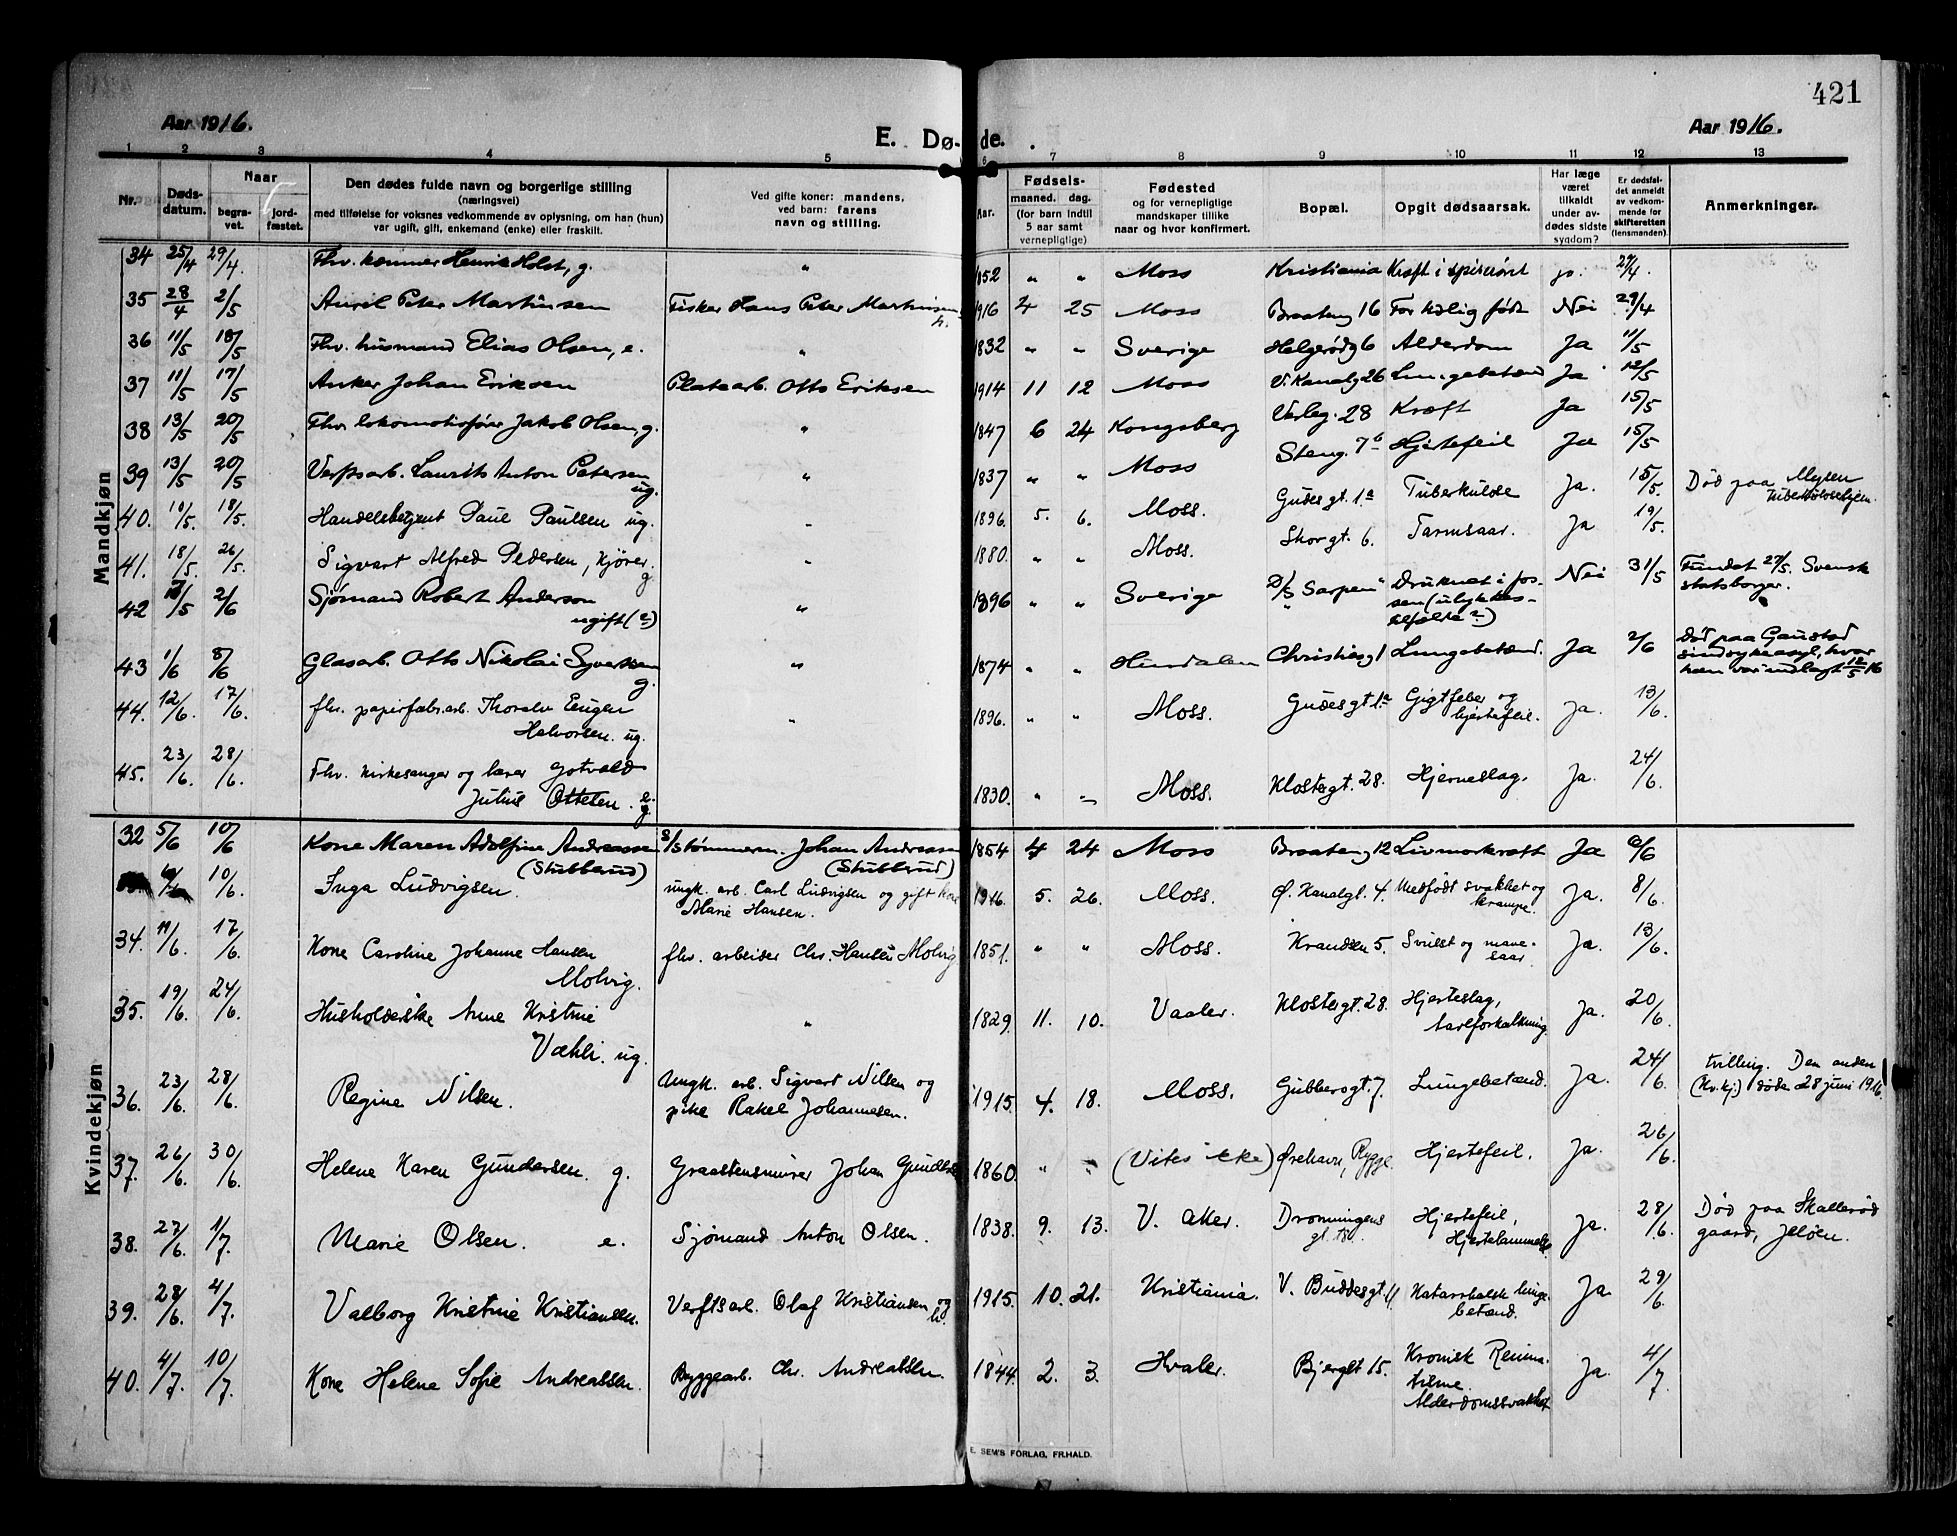 421
Aar 1916.
Aar 1916.
E. Dø- de.
1 2 3 4 5 6 7 8 9 10 11 12 13
Nr.
Døds-
datum.
Naar
begra-
vet.
jord-
fæstet.
Den dødes fulde navn og borgerlige stilling
(næringsvei)
med tilføielse for voksnes vedkommende av oplysning, om han (hun)
var ugift, gift, enkemand (enke) eller fraskilt.
Ved gifte koner: mandens,
ved barn: farens
navn og stilling.
Aar.
Fødsels-
maaned. dag.
(for barn indtil
5 aar samt
vernepligtige)
Fødested
og for vernepligtige
mandskaper tillike
naar og hvor konfirmert.
Bopæl.
Opgit dødsaarsak.
Har læge
været
tilkaldt
under av-
dødes sidste
sygdom?
Er dødsfal-
det anmeldt
av vedkom-
mende for
skifteretten
(lensmanden).
Anmerkninger.
Mandkjøn
34 25/4 29/4 Fhv. kæmner Henrik Holst, g. " 1852 " " Moss Kristiania Kræft i spiserøret ja. 27/4
35 28/4 2/5 Aurel Peter Martinsen Fisker Hans Peter Martinsen 1916 4 25 Moss Braateng 16 For tidlig født Nei 29/4
36 11/5 18/5 Fhv. husmand Elias Olsen, e. " 1832 " " Sverige Helgerødg 6 Alderdom Ja 11/5
37 11/5 17/5 Anker Johan Eriksen Platearb. Otto Eriksen 1914 11 12 Moss V. Kanalg 26 Lungebetænd Ja 12/5
38 13/5 20/5 Fhv. lokomotivfører Jakob Olsen, g. " 1847 6 24 Kongsberg Varleg. 28 Kræft Ja 15/5
39 13/5 20/5 Verfsarb. Laurits Anton Petersen
ug. " 1837 " " Moss Steng. 7b Hjertefeil Ja 15/5
40. 10/5. 18/5. Handelsbetjent Paul Paulsen ug. 1896. 5. 6. Moss. Gudes gt. 1a Tuberkulose Ja. 15/5. Død paa Mysen
tuberkulosehjem.
41. 18/5. 26/5. Sigvart Alfred Pedersen, kjører.
g 1880. " " Moss. Skorgt. 6. Tarmsaar. Ja 19/5.
42 /5 2/6 Sjømand Robert Anderson
ugift (?) " 1896 " " Sverige D/S "Sarpen" Druknet i fos-
sen (ulykkes-
tilfælde?) Nei 31/5 Fundet 27/5. Svensk
statsborger.
43 1/6 8/6 Glasarb. Otto Nikolai Syvertsen
g. " 1874 " " Christiesg 1 Lungebetænd. Ja 2/6 Død paa Gaustad
sindsykeasyl, hvor
han var indlagt 12/5 16
44. 12/6. 17/6. fhv. papirfabr.arb. Thoralv Eugen
Halvorsen. ug. " 1896. " " Moss. Gudesgt. 1a Gigtfeber og
hjertefeil. Ja. 13/6.
45. 23/6. 28/6. Fhv. kirkesanger og lærer Gotvald
Julius Ottesen. e.
g. 1830. " " Moss. Klostergt. 28. Hjerneslag. Ja. 24/6.
Kvindekjøn
32 5/6 10/6 Kone Maren Adolfine Andreassen
(Stubberud) S/Tømmerm. Johan Andreassen
(Stubberud) 1854 4 24 Moss Braateng 12 Livmorkræft Ja 6/6
10/6. Inga Ludvigsen. ungk. arb. Carl Ludvigsen og gift kone
Marie Hansen. 1916. 5. 26. Moss. Ø. Kanalgt. 4. Medfødt svakhet og
krampe. Ja. 8/6.
34. 11/6. 17/6. Kone Caroline Johanne Hansen
Molvig. fhv. arbeider Chr. Hansen Molvig. 1851. " " Moss. Kransen 5. Svulst og mave-
saar. Ja. 13/6.
35. 19/6. 24/6. Husholderske Anne Kristine
Væhli. ug. " 1829. 11. 10. Vaaler. Klostergt. 28. Hjerteslag,
Aareforkalkning. Ja. 20/6.
36. 23/6. 28/6. Regine Nilsen. Ungk. arb. Sigvart Nilsen og
pike Rakel Johannesen. 1915. 4. 18. Moss. Gubbersgt 7. Lungebetænd. Ja. 24/6. tvilling. Den anden
(kv.kj) døde 28 juni 1916.
37. 26/6. 30/6. Helene Karen Gundersen. g. Graastensmurer Johan Gundersen 1860. " " (Vites ikke) Ørehavn, Rygge Hjertefeil. Ja. 26/6.
38. 27/6. 1/7. Marie Olsen. e. Sjømand Anton Olsen. 1838. 9. 13. V. Aker. Dronningens
gt. Hjertefeil,
Hjertelammelse Ja. 28/6. Død paa Skallerød
gaard, Jeløen.
39. 28/6. 4/7. Valborg Kristine Kristiansen. Verftsarb. Olaf Kristiansen og 1915. 10. 21. Kristiania. V. Buddesgt. Katarrhalsk lunge-
betænd. Ja. 29/6.
40. 4/7. 10/7. Kone Helene Sofie Andreassen. Byggearb. Chr. Andreassen. 1844. 2. 3. Hvaler. Bjerggt 15. Kronisk Reuma-
tisme.
Alderdomssvakhet Ja. 4/7.
E. SEM'S FORLAG, FR.HALD.